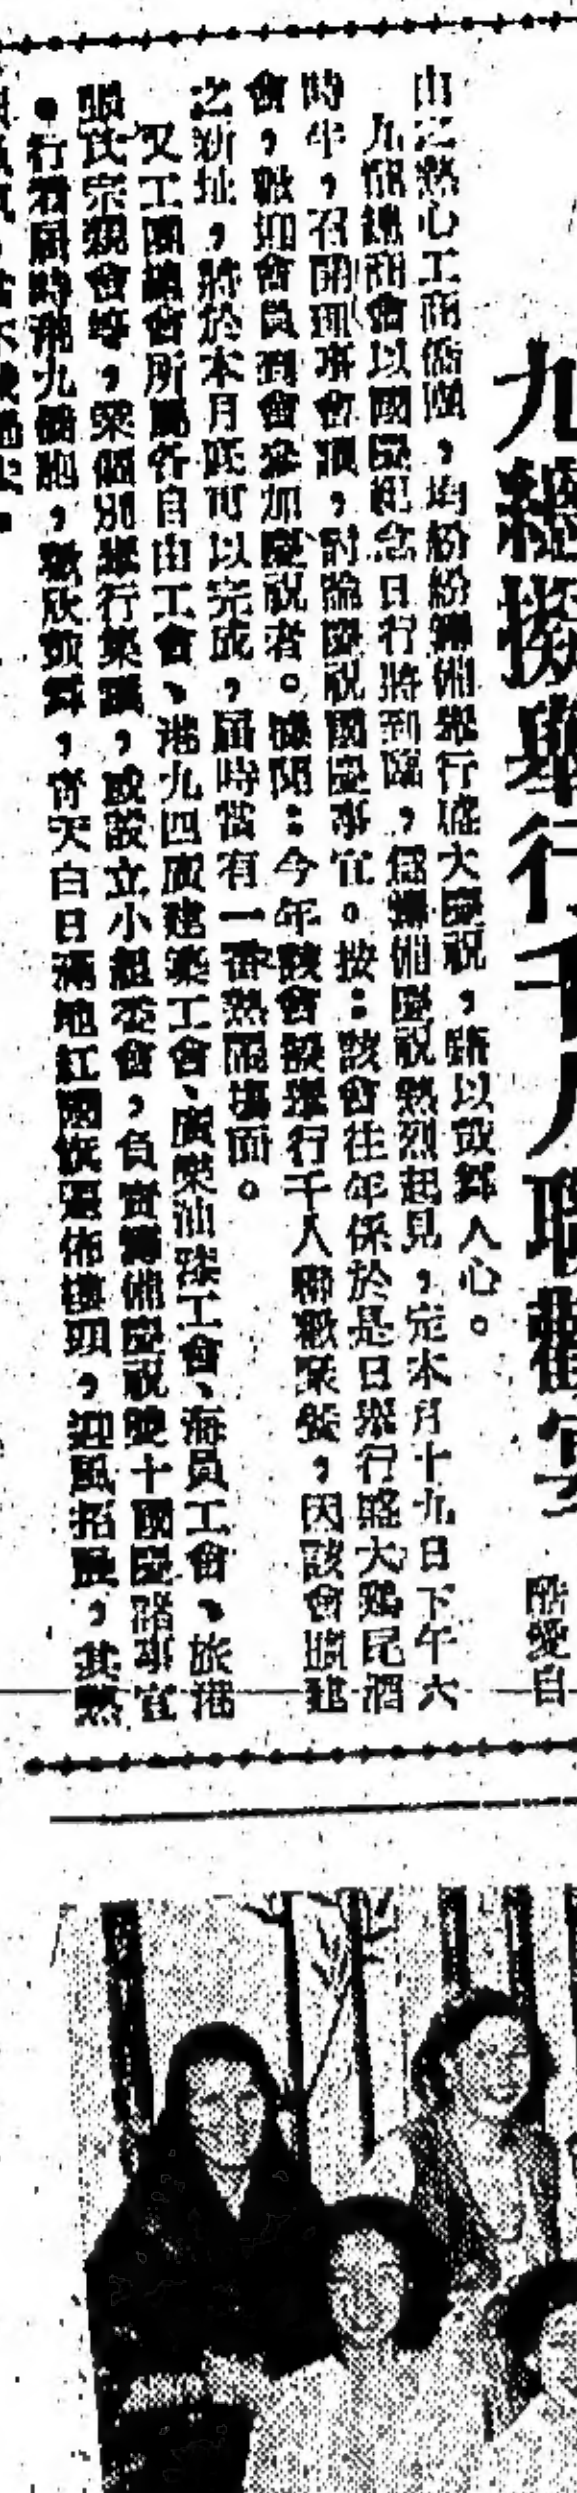 九總擬舉行千人聯歡宴
酷愛自
由之熱心工商僑團，均紛紛籌備舉行盛大慶祝，藉以鼓舞人心。
九龍總商會以國慶紀念日行將到臨，爲籌備慶祝熱烈起見，定本月十九日下午六
時半，召開理事會議，討論慶祝國慶事宜。按：該會往年係於是日舉行盛大鷄尾酒
會，歡迎會員到會參加慶祝者。據聞：今年該會擬舉行千人聯歡聚餐，因該會購建
之新址，將於本月底可以完成，屆時當有一番熱鬧塲面。
又工團總會所屬各自由工會、港九四廠建築工會、廣榮油漆工會、海員工會、旅港
張氏宗親會等，衆個別舉行集議，或設立小組委會，負責籌備慶祝雙十國慶諸事宜
●行看屆時港九僑胞，歡欣鼓舞，青天白日滿地紅國旗遍佈樓頭，迎風招展，其熱